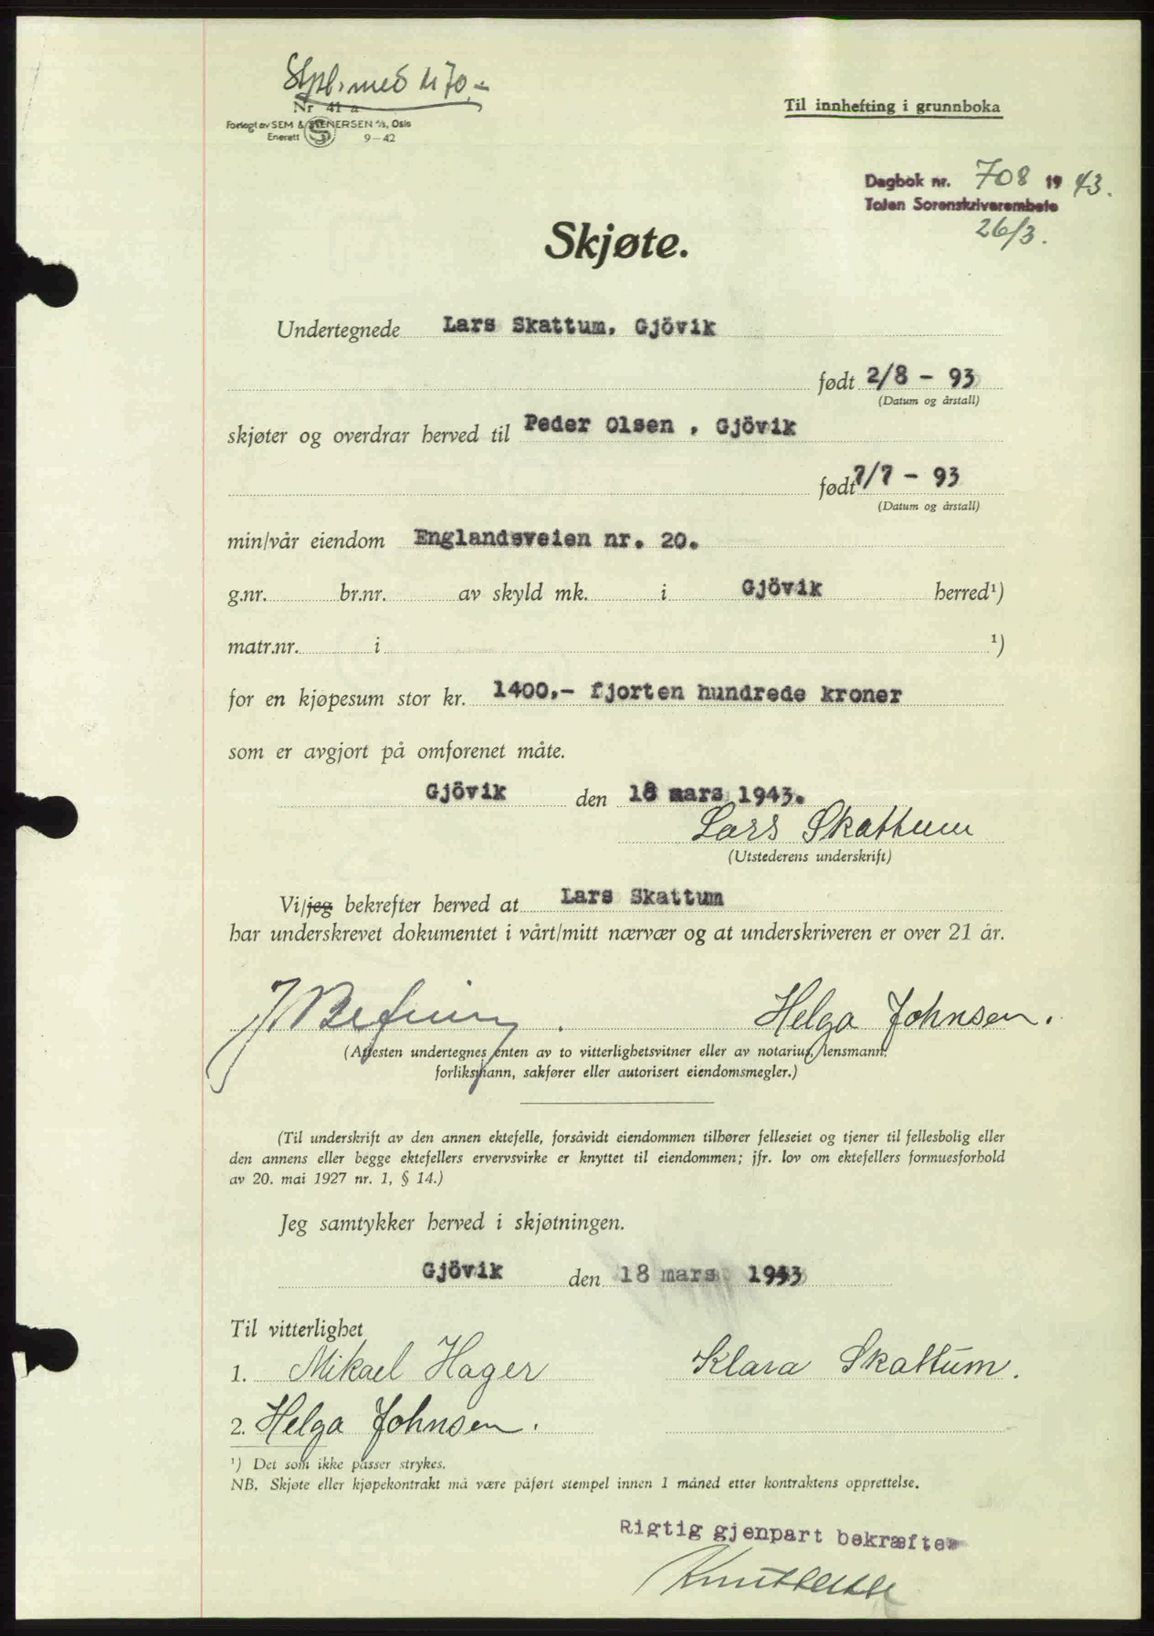 Stpl. med kr 70,-
Nr 41 a
Forlagt av SEM & STENERSEN A/S, Oslo
Enerett 9-42
Til innhefting i grunnboka
Dagbok nr. 708 19 43.
Toten Sorenskriverembete
26/3.
Skjøte.
Undertegnede Lars Skattum, Gjövik
født 2/8 - 93
(Datum og årstall)
skjøter og overdrar herved til Peder Olsen , Gjövik
født 7/7 - 93
(Datum og årstall)
min/vår eiendom Englandsveien nr. 20.
g.nr. br.nr. av skyld mk. i Gjövik herred¹)
matr.nr. i ¹)
for en kjøpesum stor kr. 1400,- fjorten hundrede kroner
som er avgjort på omforenet måte.
Gjövik den 18 mars 1943.
Lars Skattum
(Utstederens underskrift)
Vi/jeg bekrefter herved at Lars Skattum
har underskrevet dokumentet i vårt/mitt nærvær og at underskriveren er over 21 år.
Helga Johnsen.
(Attesten undertegnes enten av to vitterlighetsvitner eller av notarius, lensmann,
forliksmann, sakfører eller autorisert eiendomsmegler.)
(Til underskrift av den annen ektefelle, forsåvidt eiendommen tilhører felleseiet og tjener til fellesbolig eller
den annens eller begge ektefellers ervervsvirke er knyttet til eiendommen; jfr. lov om ektefellers formuesforhold
av 20. mai 1927 nr. 1, § 14.)
Jeg samtykker herved i skjøtningen.
Gjövik den 18 mars 1943
Til vitterlighet
1. Mikael Hager Klara Skattum.
2. Helga Johnsen.
¹) Det som ikke passer strykes.
NB. Skjøte eller kjøpekontrakt må være påført stempel innen 1 måned etter kontraktens opprettelse.
Rigtig gjenpart bekræftes